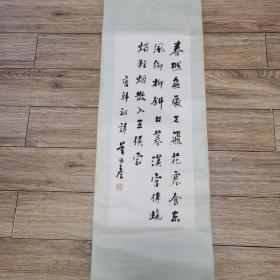 春城無處不飛花寒食東
風御柳斜日暮漢宮傳蠟
燭輕烟散入五侯家
唐韓翃詩